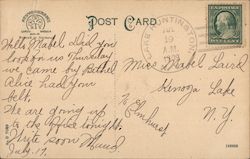 POST CARD
Hello Mabel did you
look for us Thursday
we came by Bethel
Alice had your
belt.
We are going up
to the office tonight.
Write soon Maud
July 17.
LAKE HUNTINGTON
JUL
19
A.M.
Miss Mabel Laird
Kenoza Lake
N.Y.